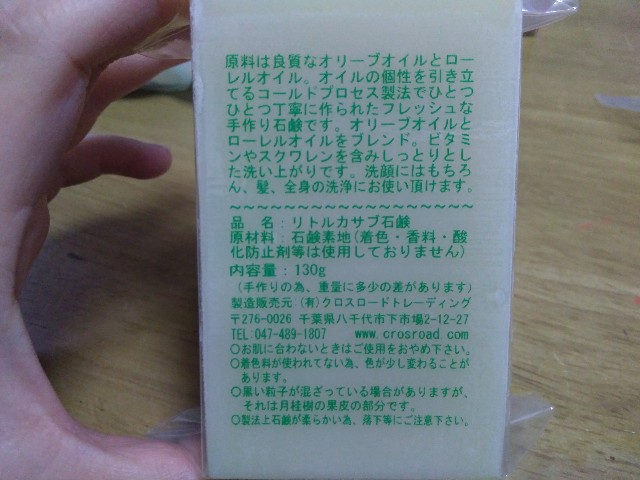 原料は良質なオリーブオイルとロー
レルオイル。オイルの個性を引き立
てるコールドプロセス製法でひとつ
ひとつ丁寧に作られたフレッシュな
手作り石鹸です。オリーブオイルと
ローレルオイルをブレンド。ビタミ
ンやスクワレンを含みしっとりとし
た洗い上がりです。洗顔にはもちろ
ん、髪、全身の洗浄にお使い頂けます。
~~~~~~~~~~~~~~~~~~
品 名：リトルカサブ石鹸
原材料：石鹸素地(着色・香料・酸
化防止剤等は使用しておりません)
内容量：130g
(手作りの為、重量に多少の差があります)
製造販売元:(有)クロスロードトレーディング
〒276-0026 千葉県八千代市下市場2-12-27
TEL:047-489-1807 www.crosroad.com
○お肌に合わないときはご使用をおやめ下さい。
○着色料が使われてない為、色が少し変わることが
あります。
○黒い粒子が混ざっている場合がありますが、
それは月桂樹の果皮の部分です。
○製法上石鹸が柔らかい為、落下等にご注意下さい。